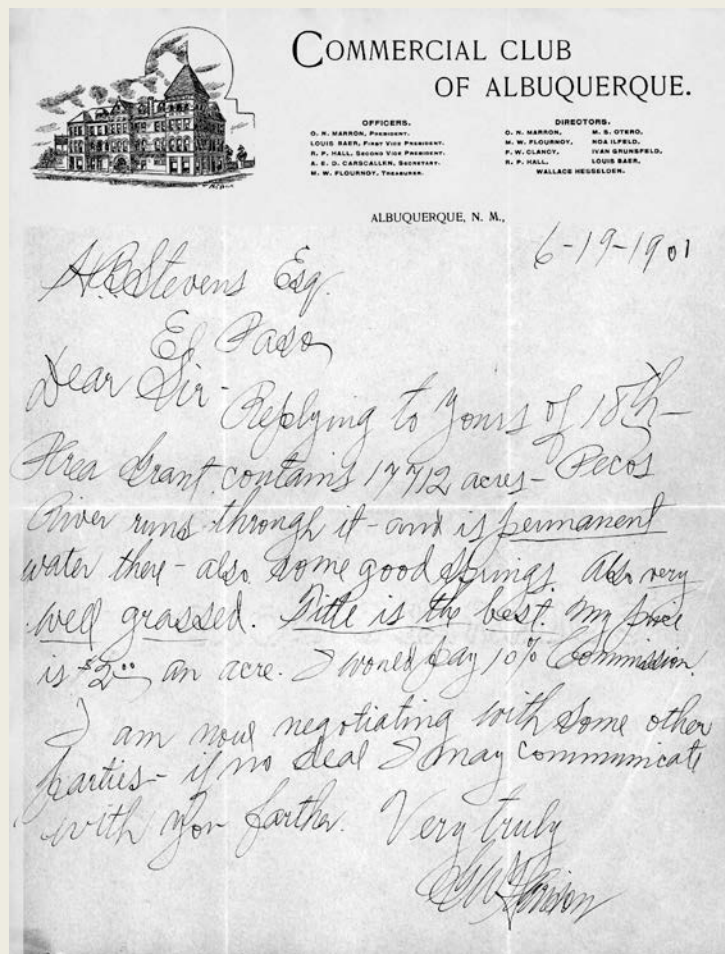 COMMERCIAL CLUB
OF ALBUQUERQUE.
OFFICERS.
O. N. MARRON, PRESIDENT.
LOUIS BAER, FIRST VICE PRESIDENT.
R. P. HALL, SECOND VICE PRESIDENT.
A. E. D. CARSCALLEN, SECRETARY.
M. W. FLOURNOY, TREASURER.
DIRECTORS.
O. N. MARRON, M. S. OTERO,
M. W. FLOURNOY, NOA ILFELD,
F. W. CLANCY, IVAN GRUNSFELD,
R. P. HALL, LOUIS BAER,
WALLACE HESSELDEN.
ALBUQUERQUE, N. M.,
6-19-1901
Stevens Esq.
El Paso
Dear Sir-
Replying to yours of 18th-
Area Grant contains 17712 acres- Pecos
River runs through it - and is permanent
water there - also some good springs. Also very
well grassed. Title is the best. My price
is $2.00 an acre. I would pay 10% Commission.
I am now negotiating with some other
parties- if no deal I may communicate
with you farther. Very truly